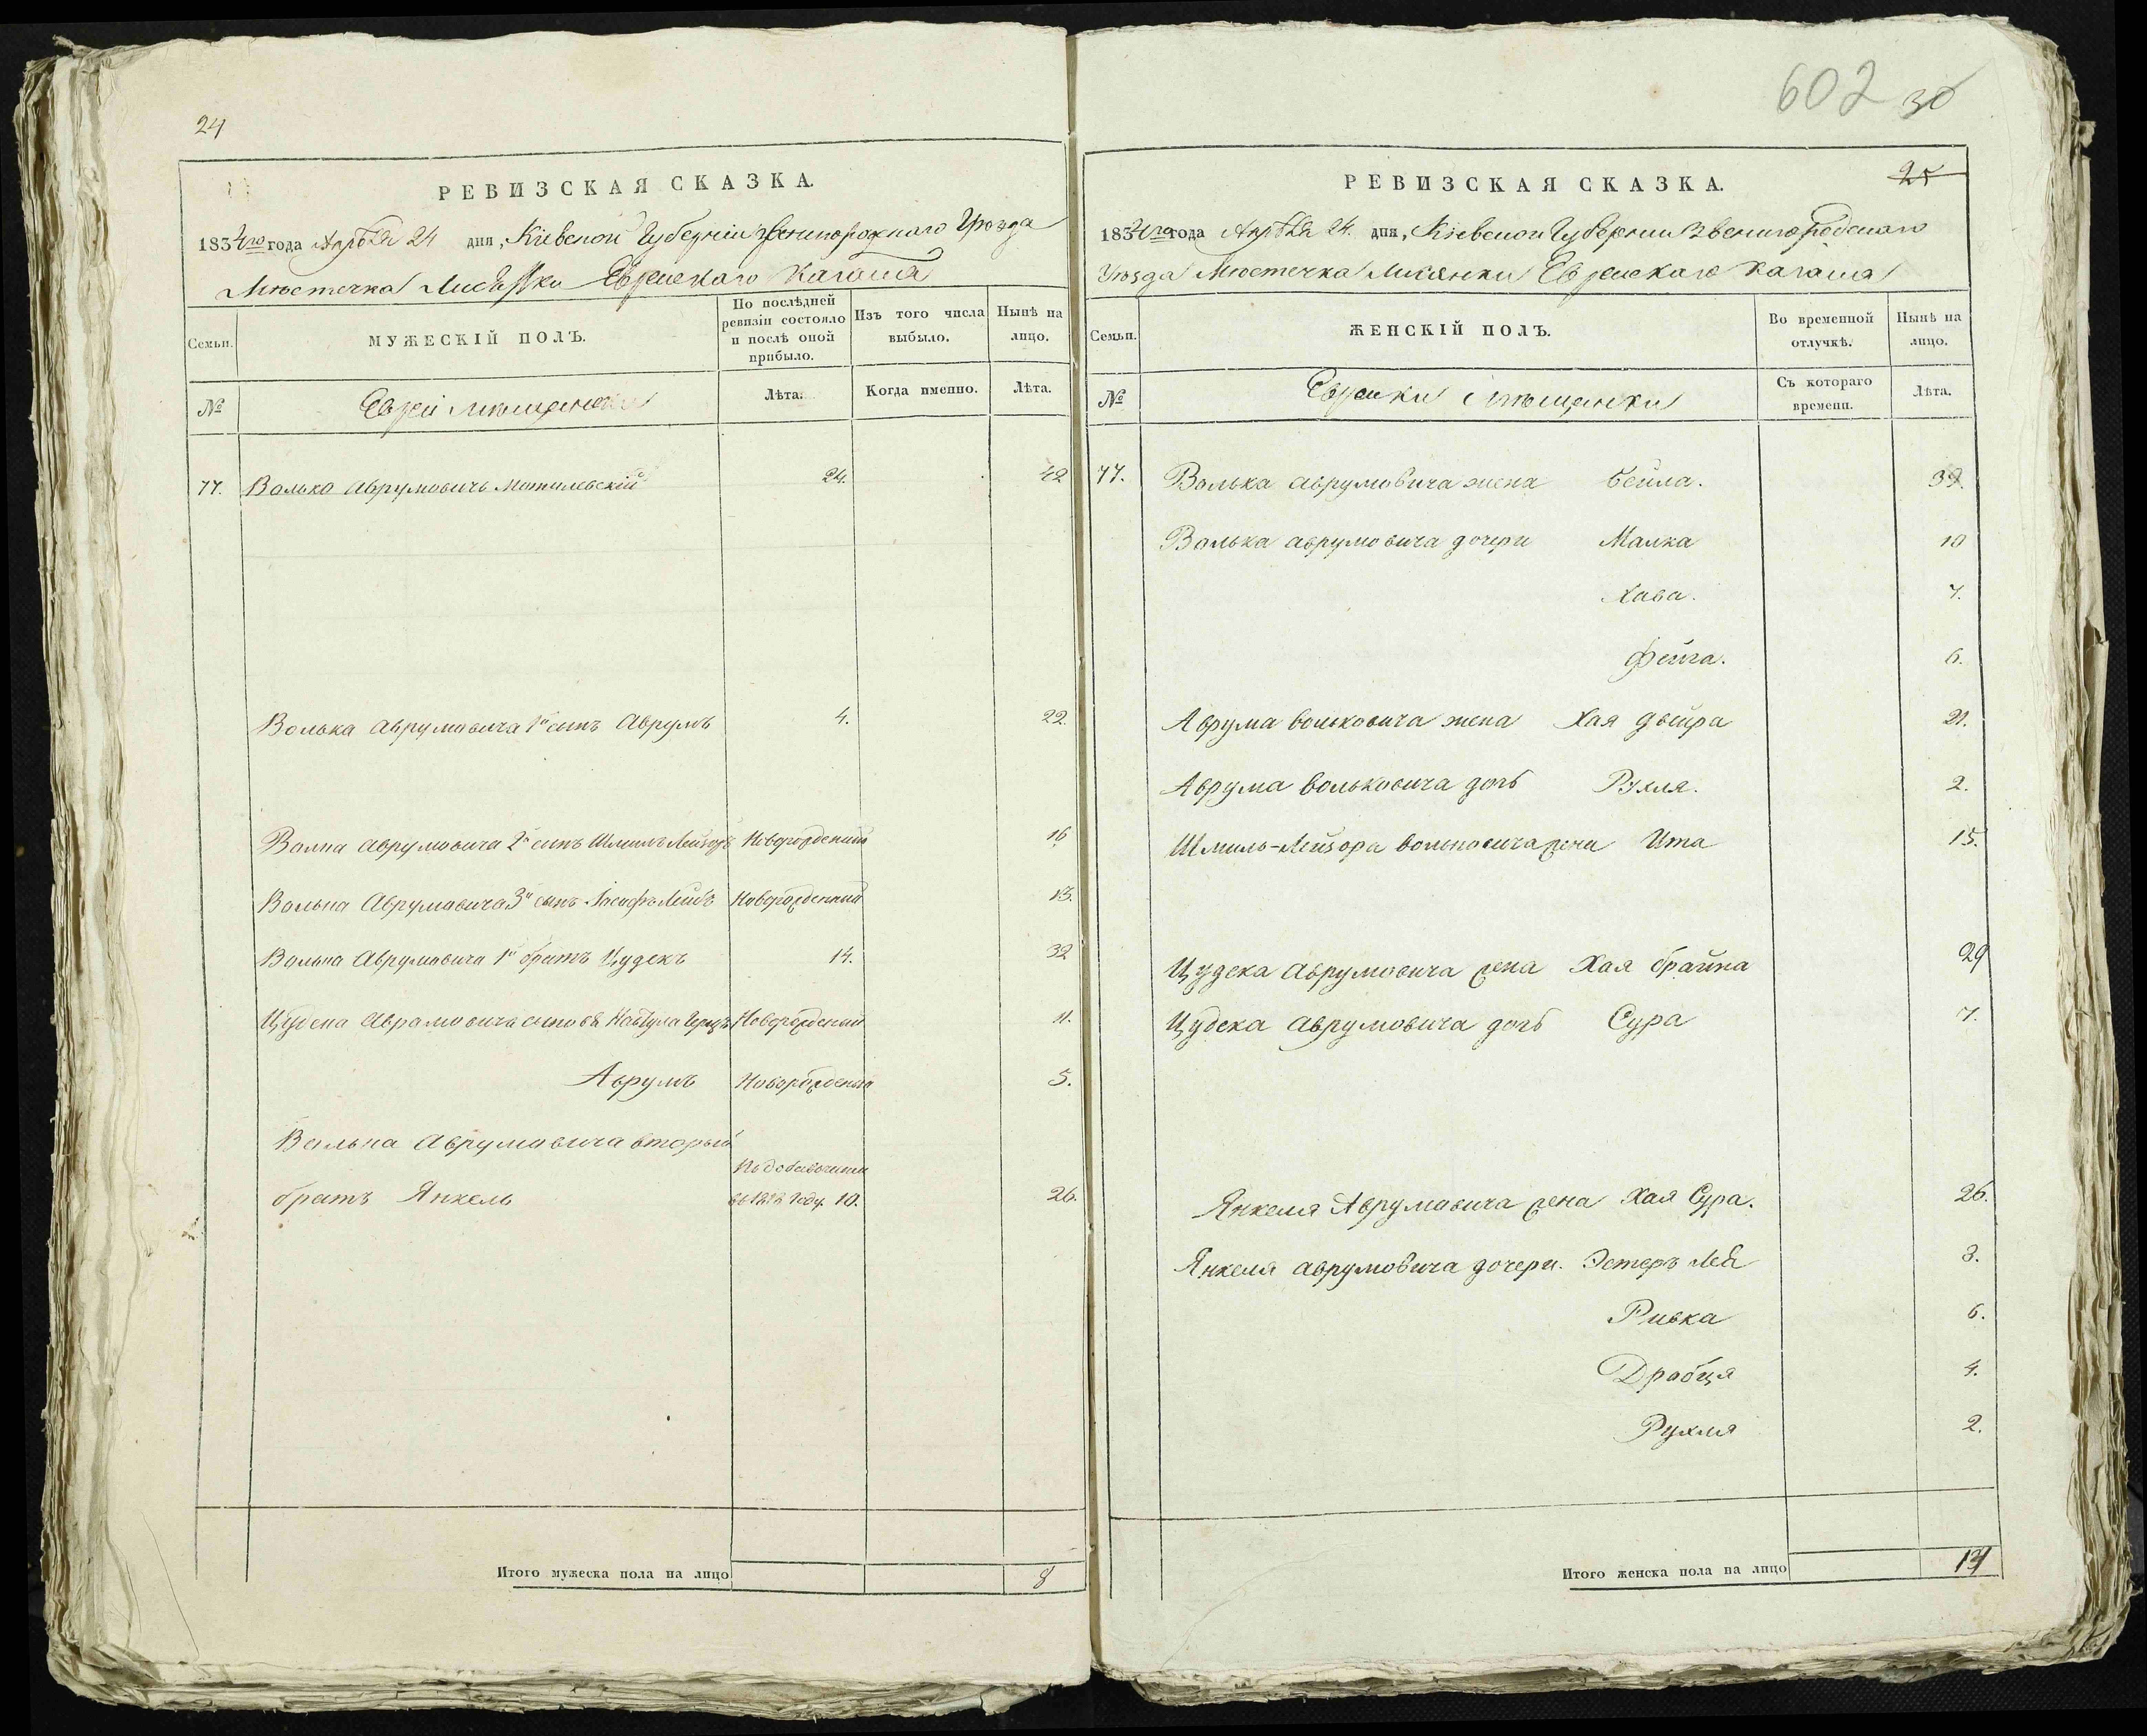 24
РЕВИЗСКАЯ СКАЗКА.
1834го года Апреля 24 дня, Кіевской Губерніи Звенигородкаго Уѣзда
Мѣстечка Лисянки Еврейскаго Кагала
Семьи.
МУЖЕСКІЙ ПОЛЪ.
По послѣдней ревизіи состояло и послѣ оной прибыло.
Изъ того числа выбыло.
Нынѣ на лицо.
№
Евреи мѣщане
Лѣта.
Когда именно.
Лѣта.
77. Волько Аврумовичь Могилевскій 24. 42
Волька Аврумовича 1й сынъ Аврумъ 4. 22.
Волька Аврумовича 2й сынъ Шмиль Лейзоръ Новорожденый 16
Волька Аврумовича 3й сынъ Іосифъ Лейбъ Новорожденный 13.
Волька Аврумовича 1й братъ Цудекъ 14. 32
Цудека Аврамовича сыновя Навтула Герцъ Новорожденый 11.
Аврумъ Новорожденый 5.
Волька Аврумовича вторый
По добавочнымъ
братъ Янкель въ 1818 году. 10. 26.
Итого мужеска пола на лицо 8
602 30
25
РЕВИЗСКАЯ СКАЗКА.
1834го года Апреля 24. дня, Кіевской Губерніи Звенигородскаго
Уѣзда Мѣстечка Лисянки Еврейскаго Кагала
Семьи.
ЖЕНСКІЙ ПОЛЪ.
Во временной отлучкѣ.
Нынѣ на лицо.
№
Еврейки мѣщанки
Съ котораго времени.
Лѣта.
77. Волька Аврумовича жена Бейла. 39.
Волька Аврумовича дочери Малка 10
Хава. 7.
Фейга. 6.
Аврума Вольковича жена Хая Двейра 21.
Аврума Вольковича дочь Рухля. 2.
Шмиль-Лейзора Вольковича жена Ита 15.
Цудека Аврумовича жена Хая Брайна 29
Цудека Аврумовича дочь Сура 7.
Янкеля Аврумовича жена Хая Сура. 26.
Янкеля Аврумовича дочери. Эстеръ Лея 8.
Ривка 6.
Драбця 4.
Рухля 2.
Итого женска пола на лицо 14